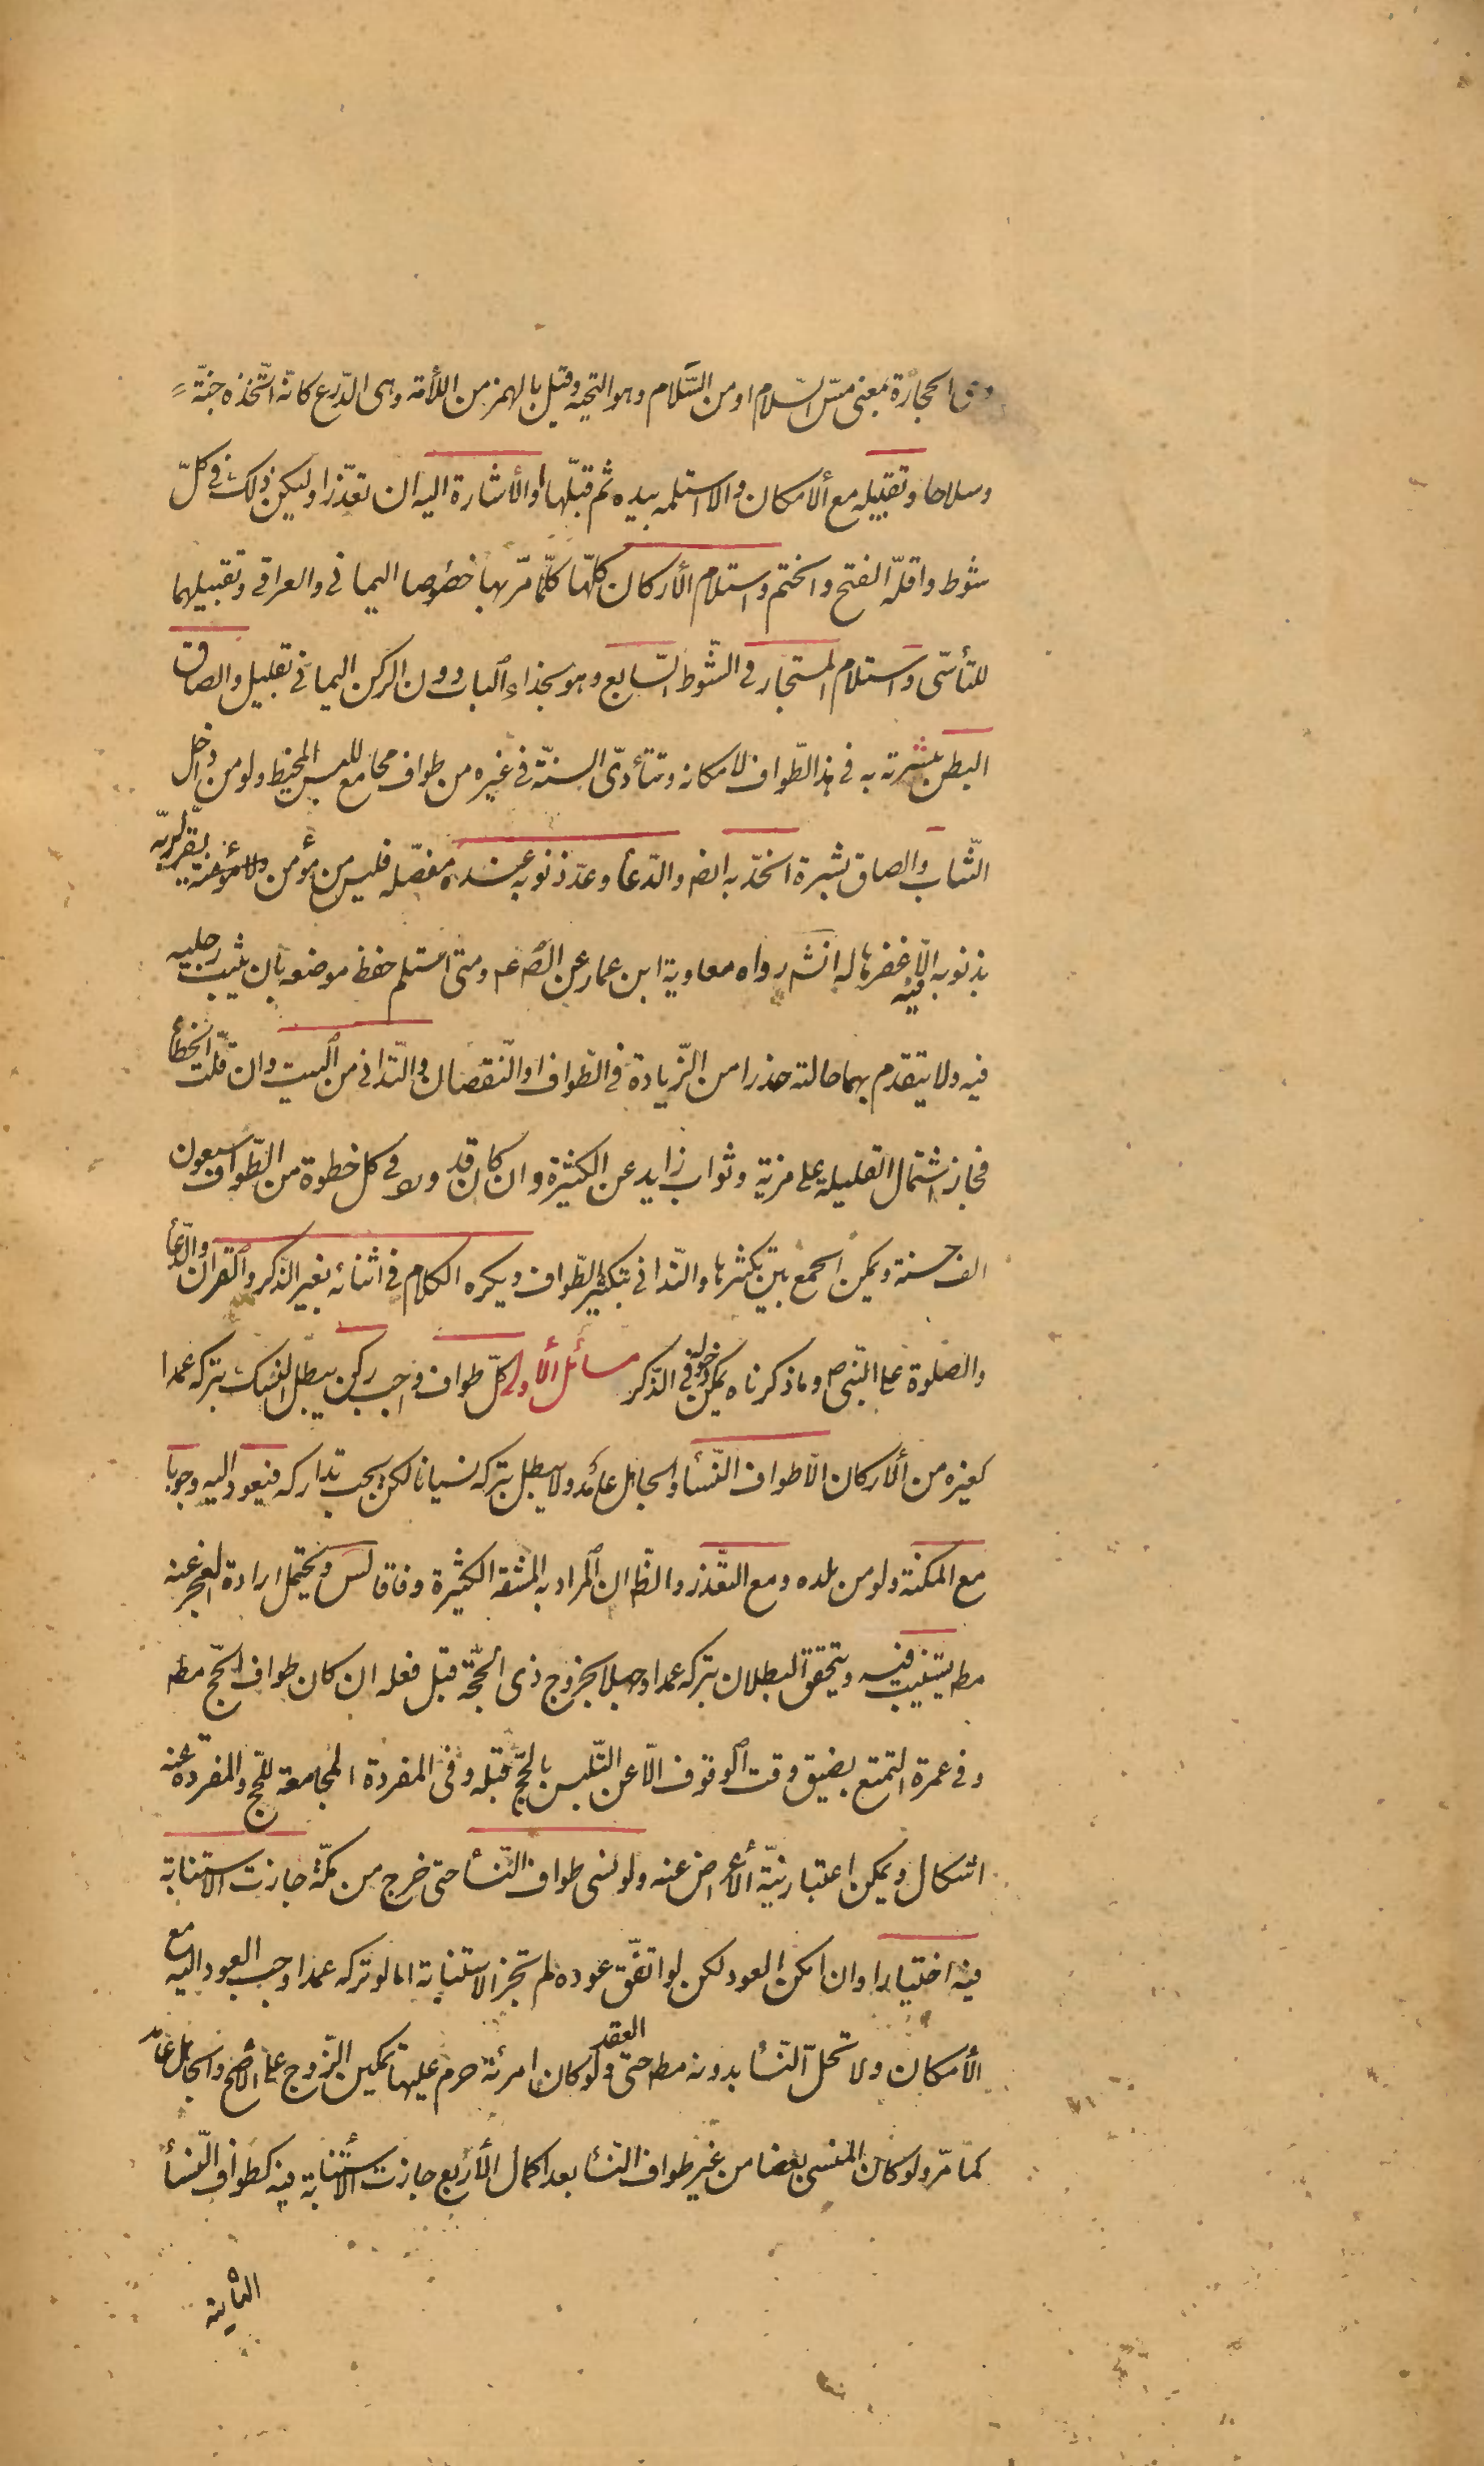 وهي الحجارة بمعنى مسّ السّلام او من السَّلام وهو التحية وقيل بالهمز من اللأمة وهى الدّرع كانّه اتّخذه جنّة
وسلاحا وتقبيله مع ألامكان والا استلمه بيده ثم قبّلها او ألأشارة اليه ان تعذّرا وليكن ذلك فى كلّ
شوط واقلّه الفتح والختم واستلام ألأركان كلّها كلّما مرّ بها خصوصا اليمانى والعراقى وتقبيلهما
للتأسّى واستلام المستجار فى الشّوط السّابع وهو بحذاء الباب دون الركن اليمانى بقليل والصاق
البطن ببشرته به فى هذا الطّواف لامكانه وتتأدّى السنّة فى غيره من طواف مجامع للبس المخيط ولو من داخل
الثّياب والصاق بشرة الخدّ به ايضا والدّعأ وعدّ ذنوبه عنده مفصّله فليس من مؤمن ولا مؤمنة يقرّ لربّه
بذنوبه فيه الّا غفرها له انشه رواه معاوية ابن عمار عن الصم عم ومتى استلم حفظ موضعه بان يثبت رجليه
فيه ولا يتقدّم بهما حالته حذرا من الزّيادة فى الطّواف او النّقصان والتّدانى من البيت وان قلّت الخطأ
فجاز اشتمال القليلة على مزيّة وثواب زايد عن الكثيرة وان كان قد ورد فى كل خطوة من الطّواف سبعون
الف حسنة ويمكن الجمع بين تكثيرها والتّدانى بتكثير الطّواف ويكره الكلام فى اثنائه بغير الذّكر والقران والدّعأ
والصّلوة على النّبى ص وما ذكرناه يمكن دخوله فى الذّكر مسائل ألأولى كلّ طواف واجب ركن يبطل النسك بتركه عمدا
كغيره من ألأركان الّا طواف النّسأ والجاهل عامد ولا يبطل بتركه نسيانا لكن يجب تداركه فيعود اليه وجوبا
مع المكنة ولو من بلده ومع التّعذر والظّ ان المراد به المشقة الكثيرة وفاقا لس ويحتمل ارادة العجز عنه
مطه يستنيب فيه ويتحقق البطلان بتركه عمدا وجهلا بخروج ذى الحجّة قبل فعله ان كان طواف الحجّ مطه
وفى عمرة التمتع بضيق وقت الوقوف الّا عن التّلبس بالحجّ قبله وفى المفردة المجامعة للحجّ والمفردة عنه
اشكال ويمكن اعتبار نيّة ألأعراض عنه ولو نسى طواف النّسأ حتى خرج من مكّة جازت الاستنابة
فيه اختيارا وان امكن العود لكن لو اتفّق عوده لم تجز الاستنابة اما لو تركه عمدا وجب العود اليه مع
الأمكان ولا تحلّ النّسأ بدونه مطه حتى العقد ولو كان امرئة حرم عليها تمكين الزّوج على الأصّح والجاهل عامد
كما مرّ ولو كان المنسى بعضا من غير طواف النّسأ بعد اكمال ألأربع جازت الأستنابة فيه كطواف النّسأ
الثّانية